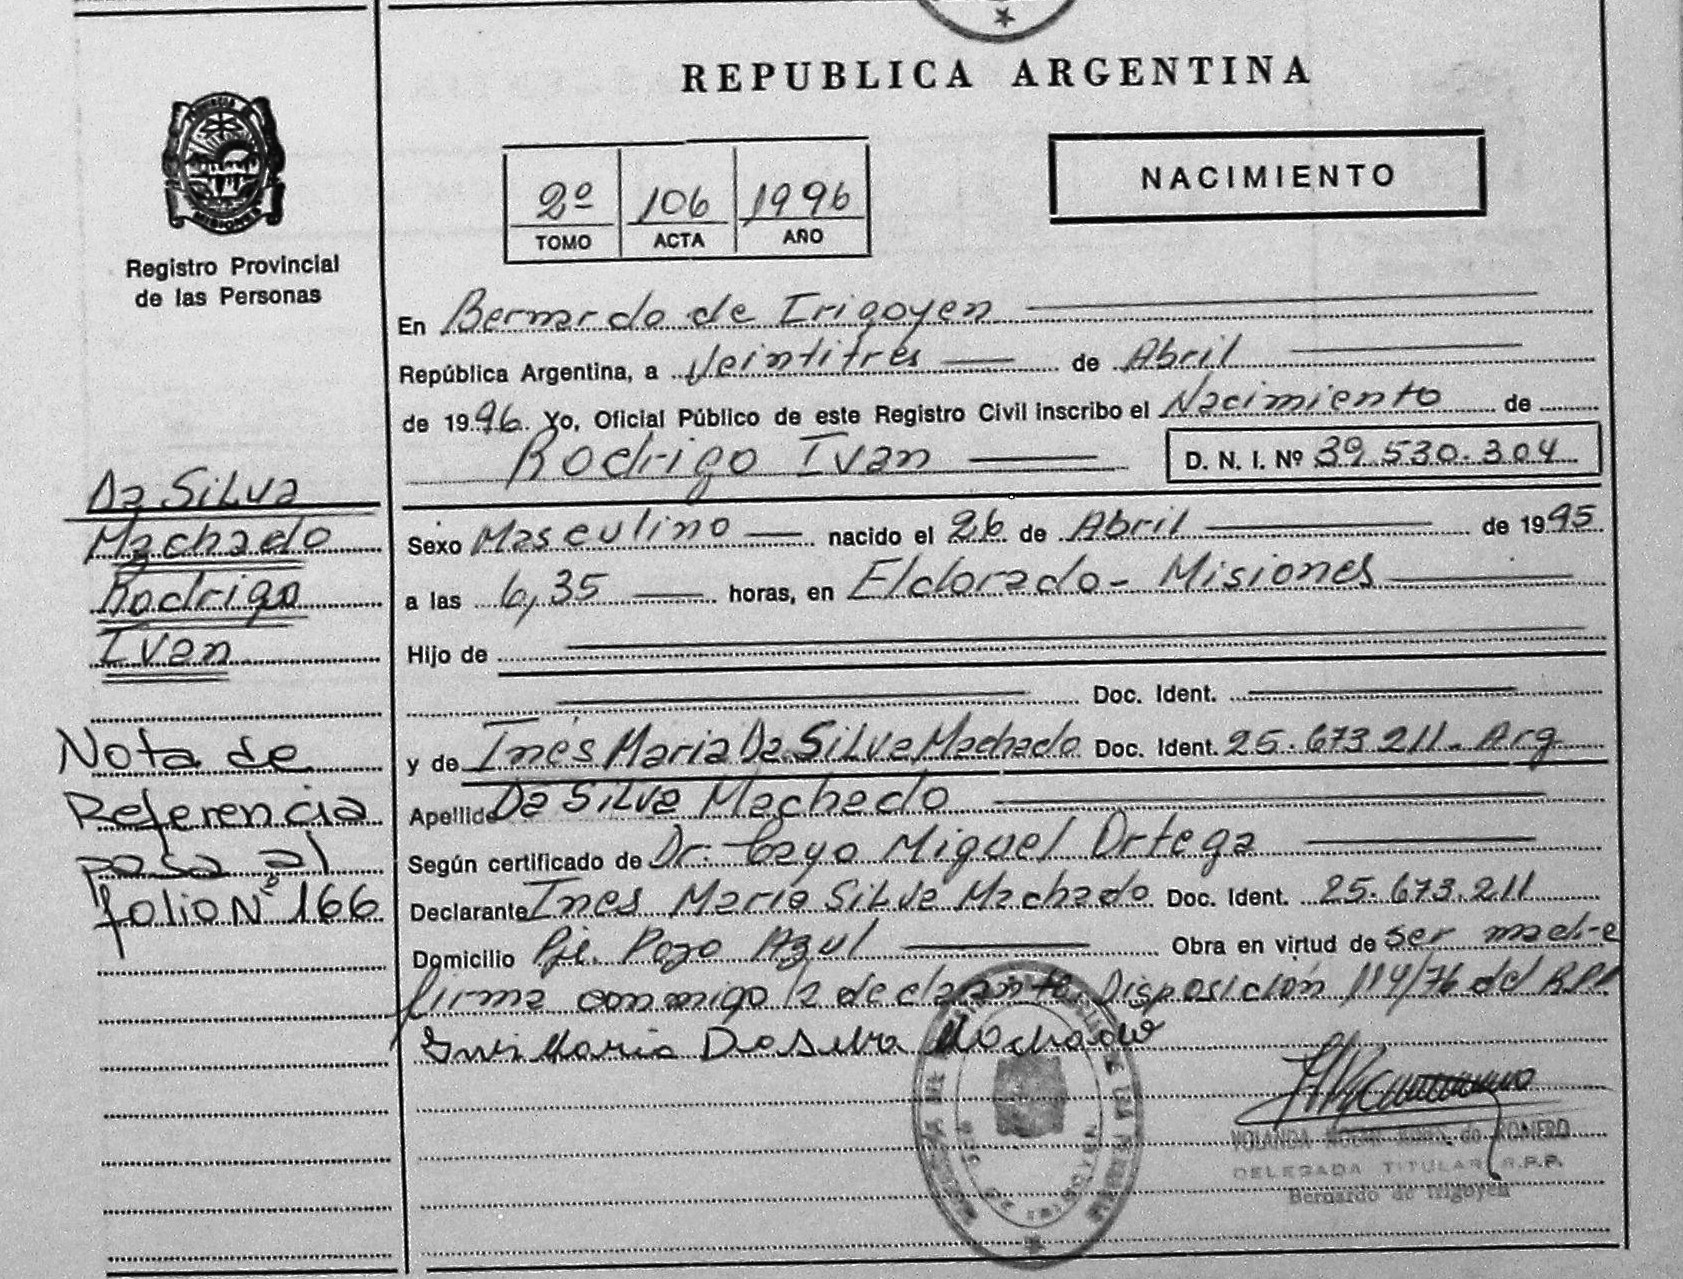 REPUBLICA ARGENTINA
PROVINCIA
MISIONES
Registro Provincial
de las Personas
2º 106 1996
TOMO ACTA AÑO
NACIMIENTO
En Bernardo de Irigoyen
República Argentina, a Veintitres de Abril
de 1996. Yo, Oficial Público de este Registro Civil inscribo el Nacimiento de
Rodrigo Ivan D. N. I. Nº 39.530.304
Sexo Masculino nacido el 26 de Abril de 1995
a las 6,35 horas, en Eldorado - Misiones
Hijo de
Doc. Ident.
y de Ines Maria Da Silva Machado Doc. Ident. 25.673 211. Arg
Apellido Da Silva Machado
Según certificado de Dr. Cayo Miguel Ortega
Declarante Ines Maria Silva Machado Doc. Ident. 25.673.211
Domicilio Pje. Pozo Azul Obra en virtud de ser madre
firma conmigo la declarante, Disposición 114/76 del RPP
Ines Maria Da Silva Machado
YOLANDA de ROMERO
DELEGADA TITULAR R.P.P.
Bernardo de Irigoyen
Da Silva
Machado
Rodrigo
Ivan
Nota de
Referencia
pasa al
folio Nº 166